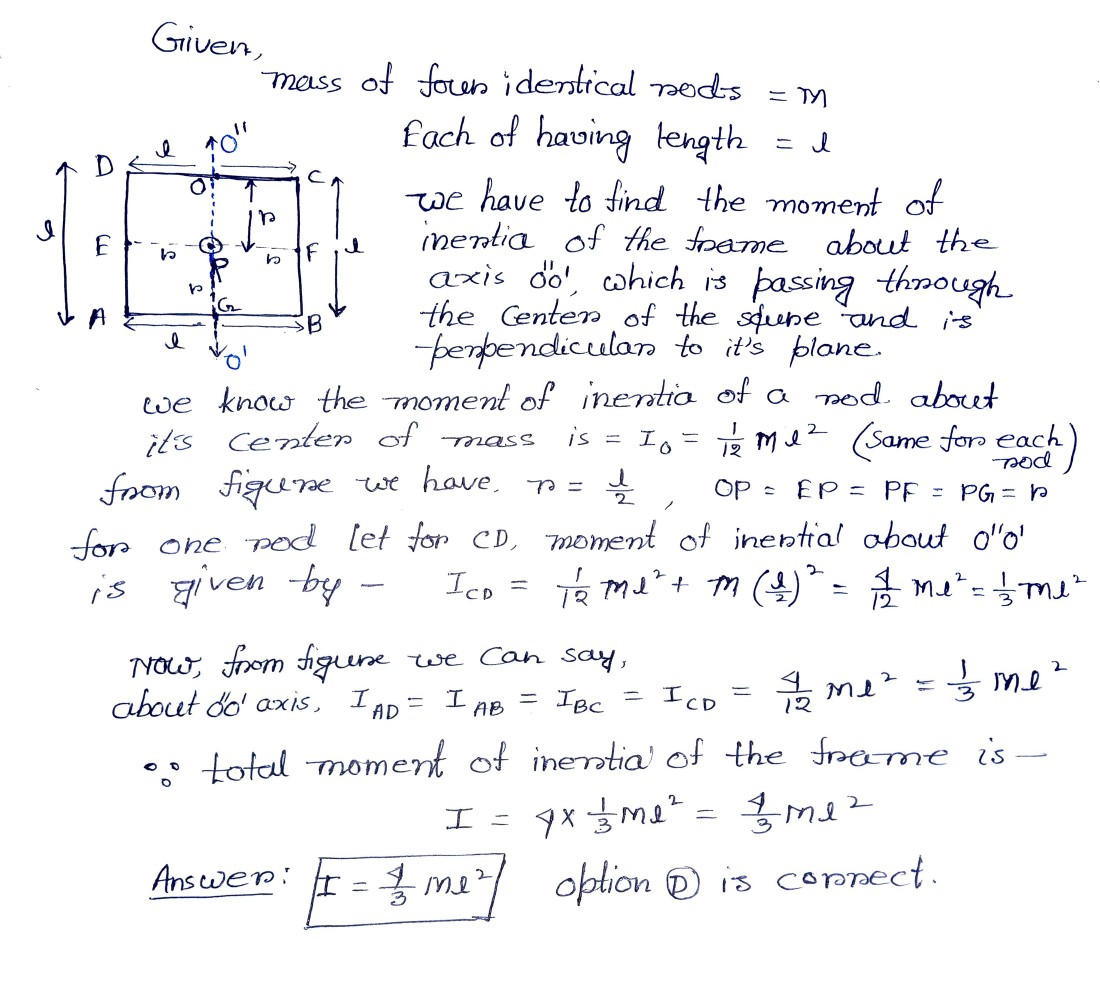 Given,
mass of four identical rods = m
Each of having length = l
we have to find the moment of
inertia of the frame about the
axis o''o', which is passing through
the Center of the squre and is
perpendicular to it's plane.
D l O'' C
O
l E r P r F l
r
r
A G B
l O'
we know the moment of inertia of a rod about
it's center of mass is = I₀ = 1/12 ml² (Same for each rod)
from figure we have, r = l/2 , OP = EP = PF = PG = r
for one rod let for CD, moment of inertial about o''o'
is given by - I_CD = 1/12 ml² + m (l/2)² = 4/12 ml² = 1/3 ml²
Now, from figure we can say,
about o''o' axis, I_AD = I_AB = I_BC = I_CD = 4/12 ml² = 1/3 ml²
∴ total moment of inertia of the frame is —
I = 4 × 1/3 ml² = 4/3 ml²
Answer: I = 4/3 ml² option Ⓓ is correct.